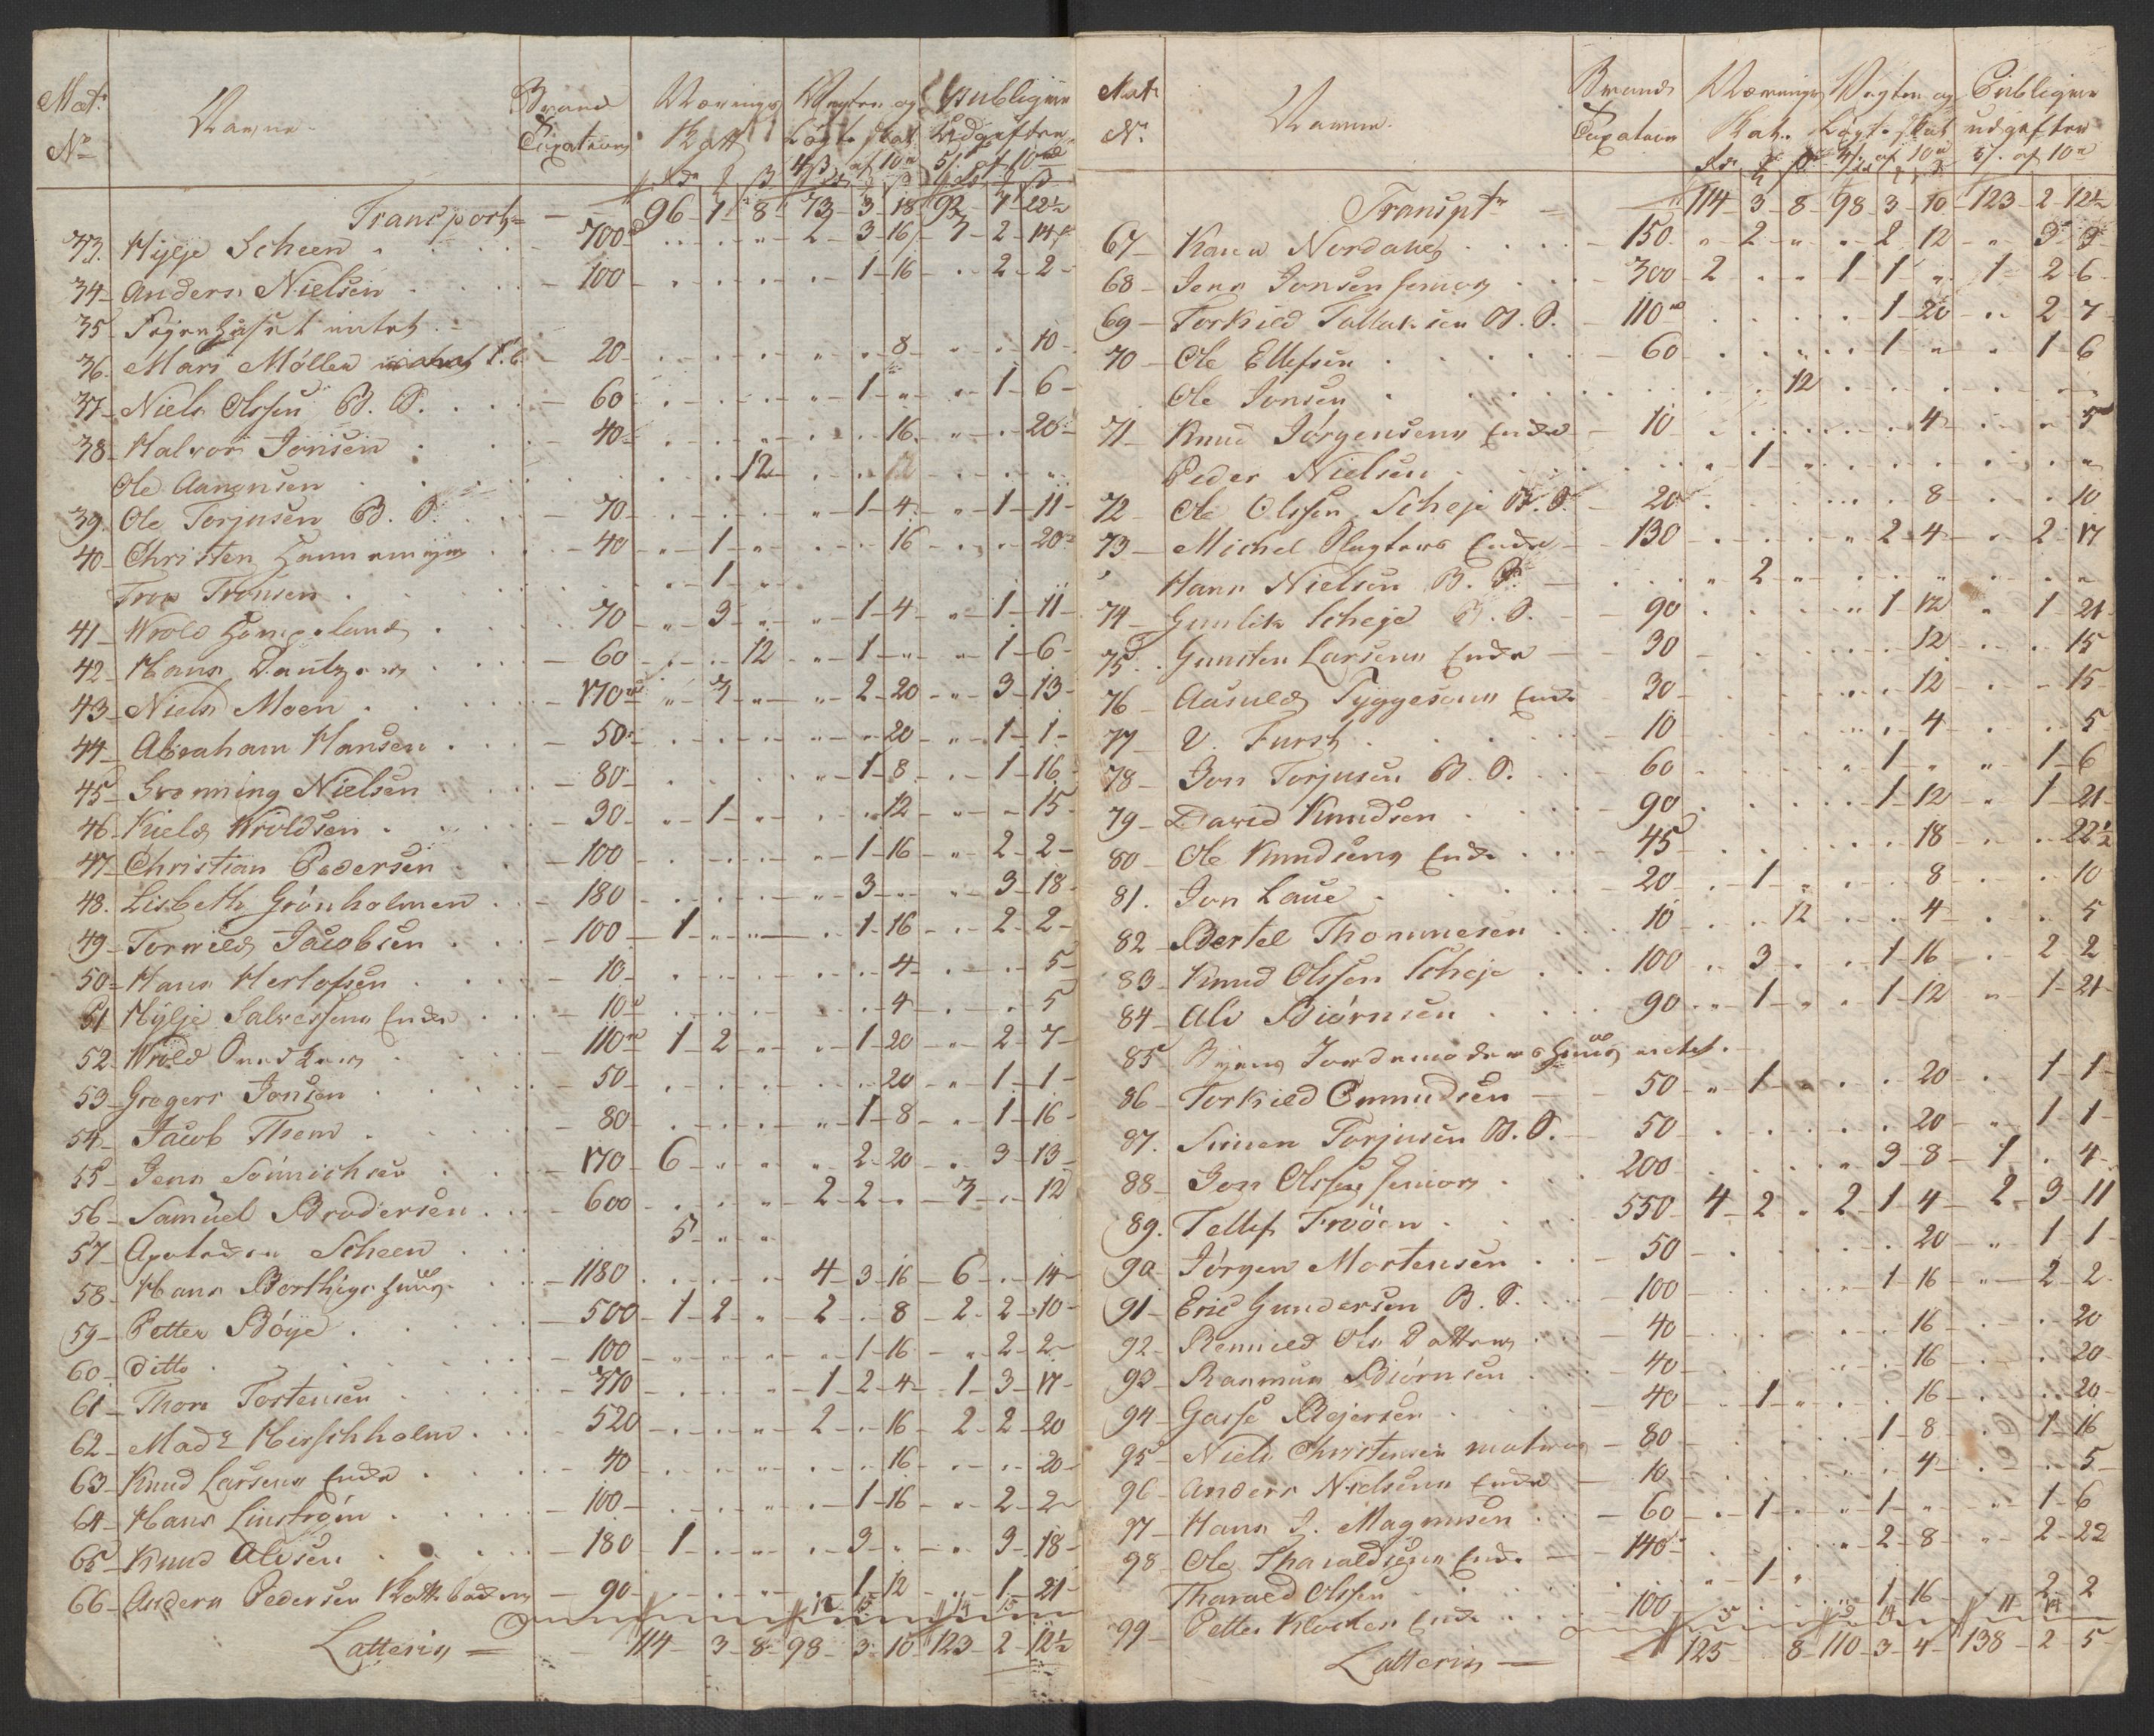 Mat: Navne. Brand Nærings Vegter og Publiqve
No Taxation Skatt Løgte skat Udgifter
4 ß af 10 rd 5 ß. af 10 rd
Rdr ß
Transport = 96 - 1 - 8 - 73 - 3 - 18 - 92 - 1 - 22½
33. Hylje Scheen . - 700 - 2 - 3 - 16 - 3 - 2 - 14
34 - Anders Nielsen - 100 - 1 - 16 - 2 - 2 -
35 - intet
36. Mari Møller - 20 - 8 - 10 -
37 - Niels Olssen B. S. - 60 - 1 - " - 1 - 6 -
38 - Halvor Jonsen - 40 - 16 - 20 -
Ole Aanonsen 12
39. Ole Torjusen B. S. - 70 - 1 - 4 - 1 - 11 -
40 - Christen - 40 - 1 - " 16 - 20
Tron Tronsen . 1
41 - Wrold - 70 - 3 - 1 - 4 - 1 - 11 -
42. Hans Dantzer - 60 - 12 - 1 - " - 1 - 6 -
43 - Niels Moen . - 170 - 3 - 2 - 20 - 3 - 13 -
44 - Abraham Hansen . - 50 - 20 - 1 - 1 -
45 - Grønning Nielsen - 80 - 1 - 8 - 1 - 16 -
46 - Kield Wroldsen . - 30 - 1 - 12 - 15 -
47 - Christian Pedersen - 100 - 1 - 16 - 2 - 2 -
48. Lisbeth Grønholmen - 180 - 3 - " - 3 - 18 -
49 - Torkield Jacobsen - 100 - 1 - 1 - 16 - 2 - 2 -
50 - Hans Herlofsen - 10 - 4 - 5 -
51 Hylje Salvessens Enke - 10 - 4 - 5
52. Wrold - 110 - 1 - 2 - 1 - 20 - 2 - 7 -
53 - Gregers Jonsen - 50 - 20 - 1 - 1 -
54 - Jacob Them . - 80 - 1 - 8 - 1 - 16 -
55 - Jens Sønnichsen - 170 - 6 - 2 - 20 - 3 - 13 -
56 - Samuel Brodersen . - 600 - 2 - 2 - 3 - 12
57 - Apoteker Scheen 5 - " - "
58 - Hans Berthigs Huus . - 1180 - 4 - 3 - 16 - 6 - 14 -
59 - Petter Bøye . - 500 - 1 - 2 - 2 - 8 - 2 - 2 - 10 -
60 - ditto . - 100 - 1 - 16 - 2 - 2 -
61 - Thom Tostensen - 370 - 1 - 2 - 4 - 1 - 3 - 17 -
62 - Mad: Hirschholm . - 520 - 2 - 16 - 2 - 2 - 20
63 - Knud Larsens Enke . - 40 - 16 - 20 -
64 - Hans Linstrøm . - 100 - 1 - 16 - 2 - 2
65 - Knud Alvsen - 180 - 1 - 3 - " - 3 - 18 -
66 - Anders Pedersen - 90 - 1 - 12 - 1 - 21 -
12 15 14 15
Latteris = 114 - 3 - 8 - 98 - 3 - 10 - 123 - 2 - 12½
Mat: Navne. Brand Nærings Vegter og Publiqve
No Taxation Skat. Løgte skat udgifter
Rdr ß 4 ß. af 10 rd 5 ß. af 10 rd
Transpt = 114 - 3 - 8 - 98 - 3 - 10 - 123 - 2 - 12½
67 - Karen Nordahl - 150 - 2 - 2 - 12 - 3 - 3
68 - Jens Jonsen Senior - 300 - 2 - 1 - 1 - " - 1 - 2 - 6
69 - Torkield Tallaksen B. S. - 110 - 1 - 20 - 2 - 7 -
70 - Ole Ellefsen . - 60 - 1 - " - 1 - 6
Ole Jonsen . 12
71 - Knud Jørgensens Enke - 10 - 4 - 5
Peder Nielsen . 1
72 - Ole Olssen Scheje B. S. - 20 - 8 - 10
73 - Michel Slagters Enke - 130 - 2 - 4 - 2 - 17
Hans Nielsen B. S. - 2
74 - Gunlik Scheje B. S. - 90 - 1 - 12 - 1 - 21
75 - Gunsten Larsens Enke - 30 - 12 - 15
76 - Aasuld Tyggesens Enke 30 - 12 - 15
77 - V. Fursh . - 10 - 4 - 5
78 - Jon Torjusen B. S. - 60 - 1 - " - 1 - 6
79 - David Knudsen - 90 - 1 - 12 - 1 - 21 -
80 - Ole Knudsens Enke . - 45 - 18 - 22½
81. Jon Laue . - 20 - 1 - 8 - 10
82 - Bertel Thommesen . 10 - 12 - 4 - 5
83 - Knud Olssen Scheje . 100 - 3 - 1 - 16 - 2 2
84 - Alv Biørnsen . 90 - 1 - 1 - 12 - 1 - 21 -
85 Byens Jordemoders Huus intet. -
86 - Torkield Omundsen - 50 - 1 - 20 - 1 - 1 -
87. Simen Torjusen B. S. - 50 - 20 - 1 - 1 -
88 - Jon Olssen Senior . 200 - 3 - 8 - 1 - 4 -
89. Tellef Frøen . 550 - 4 - 2 - 2 - 1 - 4 - 2 - 3 - 11
90 - Jørgen Mortensen . - 50 - 20 - 1 - 1 -
91 - Eric Gundersen B. S. - 100 - 1 - 16 - 2 - 2
92 - Rennild Ols Datter - 40 - 16 - 20
93 - Rasmus Biørnsen - 40 - 16 - 20
94 - Gasse Reiersen . - 40 - 1 - 16 - 20 -
95 - Niels Christensen matros - 80 - 1 - 8 - 1 - 16
96 - Anders Nielsens Enke - 10 - 4 - 5 -
97 - Hans J. Magnusen . - 60 - 1 - 1 - " - 1 - 6
98 - Ole Tharaldsens Enke - 140 - 2 - 8 - 2 - 22
Tharald Olssen . 1
99 - Petter Klockers Enke . 100 - 1 - 16 - 2 2
5 9 14 11 14
Latteris - 125 - 8 - 110 - 3 - 4 - 138 - 2 - 5 -